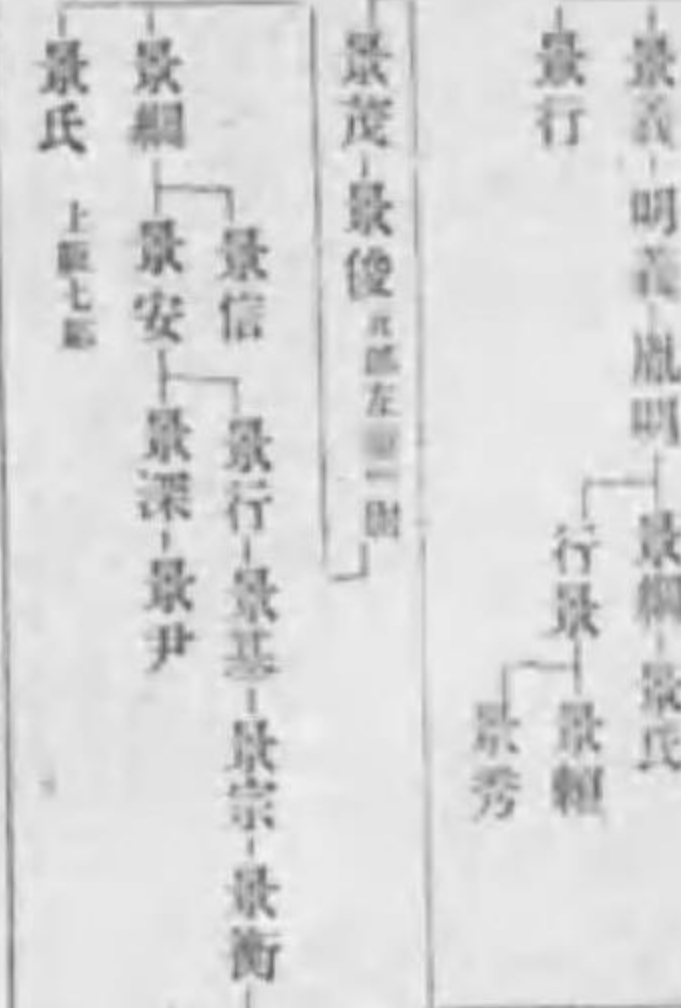 景義
明義
胤明
景綱
景氏
景行
行景
景頼
景秀
景茂
景俊
景綱
景信
景安
景行
景基
景宗
景衡
景深
景尹
景氏